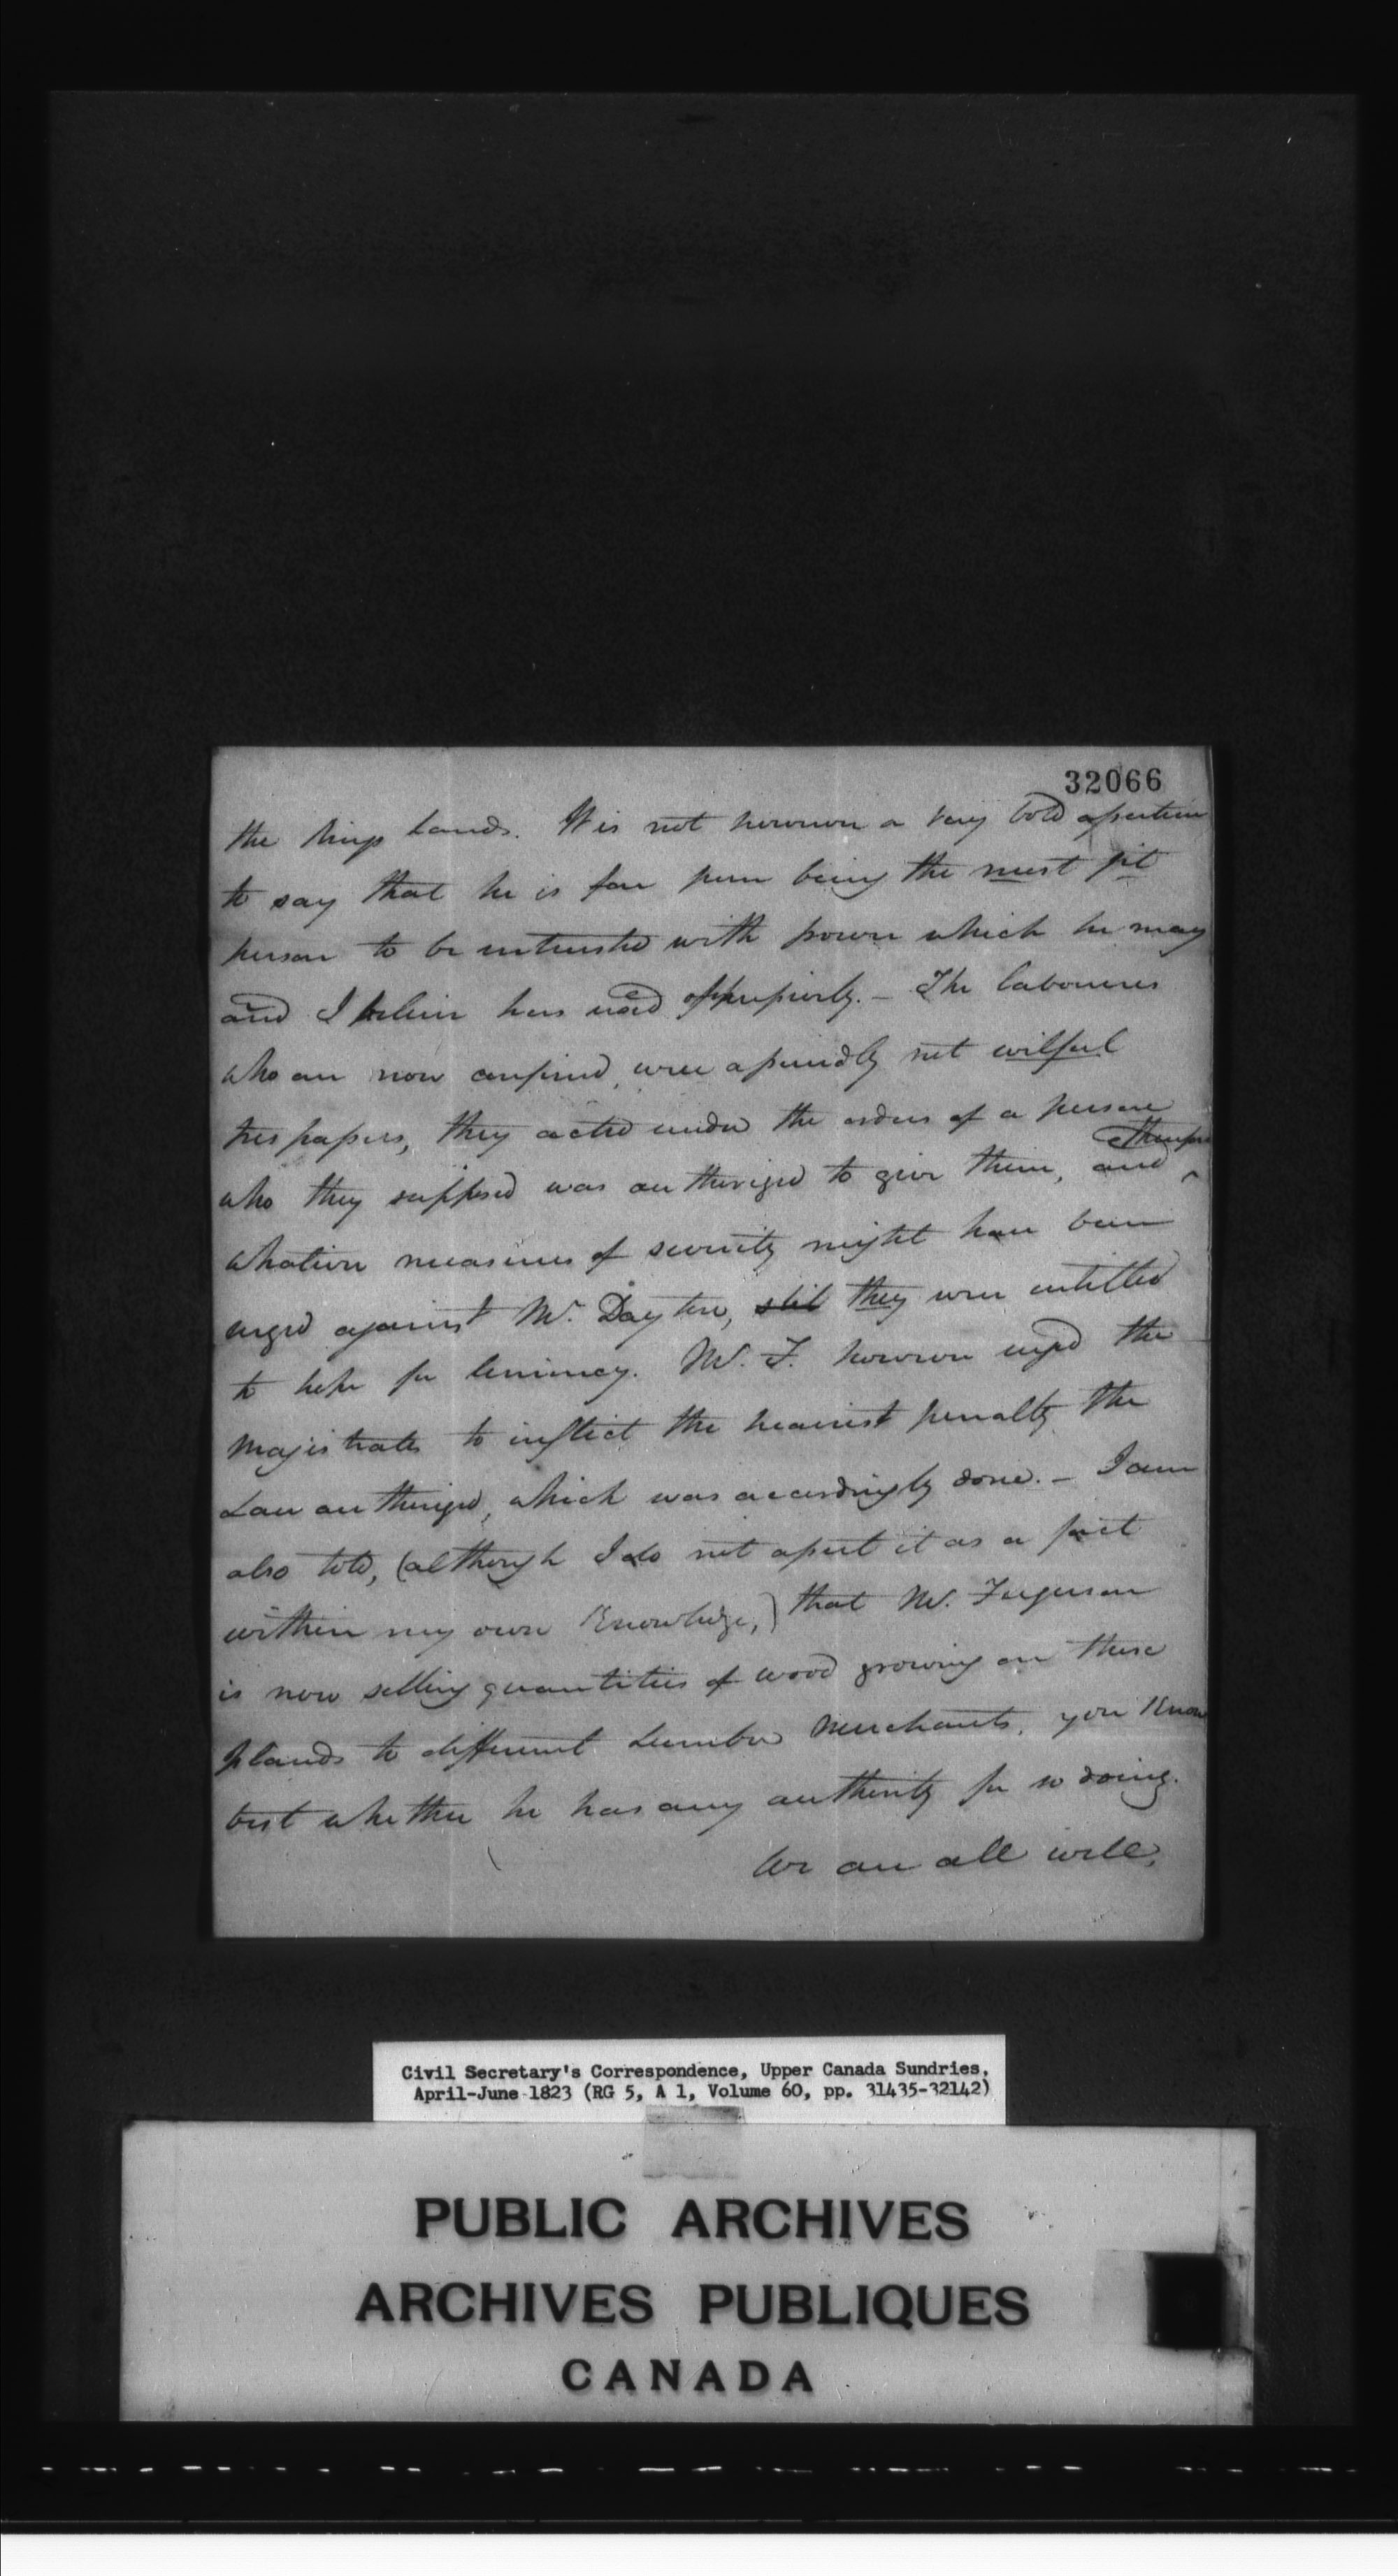 32066
the Kings lands. It is not however a very bold assertion
to say that he is far from being the most fit
person to be intrusted with power which he may
and I believe has used oppressively. – The labourers
who are now confined, were assuredly not wilful
trespassers, they acted under the orders of a person
who they supposed was authorized to give them, and therefore
whatever measures of severity might have been
urged against Mr. Dayton, still they were entitled
to hope for leniency. Mr. F. however urged the
Magistrates to inflict the heaviest penalty the
Law authorized, which was accordingly done. – I am
also told, (although I do not assert it as a fact
within my own Knowledge,) that Mr. Ferguson
is now selling quantities of wood growing on these
Islands to different Lumber Merchants, you Know
best whether he has any authority for so doing.
We are all well,
Civil Secretary's Correspondence, Upper Canada Sundries,
April-June 1823 (RG 5, A 1, Volume 60, pp. 31435-32142)
PUBLIC ARCHIVES
ARCHIVES PUBLIQUES
CANADA